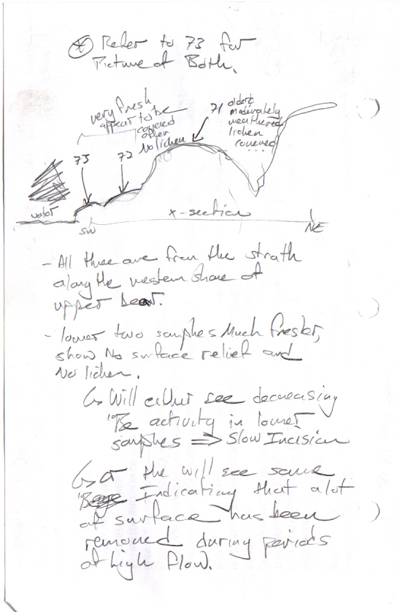 * Refer to 73 for
Picture of Both.
very fresh
appear to be
covered
often
No lichen
71 older
moderately
weathered
lichen
covered
73
72
water
SW
x-section
NE
- All three are from the strath
along the western shore of
upper bear.
- lower two samples Much fresher,
show No surface relief and
No lichen.
↳ Will either see decreasing
10Be activity in lower
samples ⇒ Slow Incision
↳ or the will see same
Indicating that a lot
of surface has been
removed during periods
of high flow.